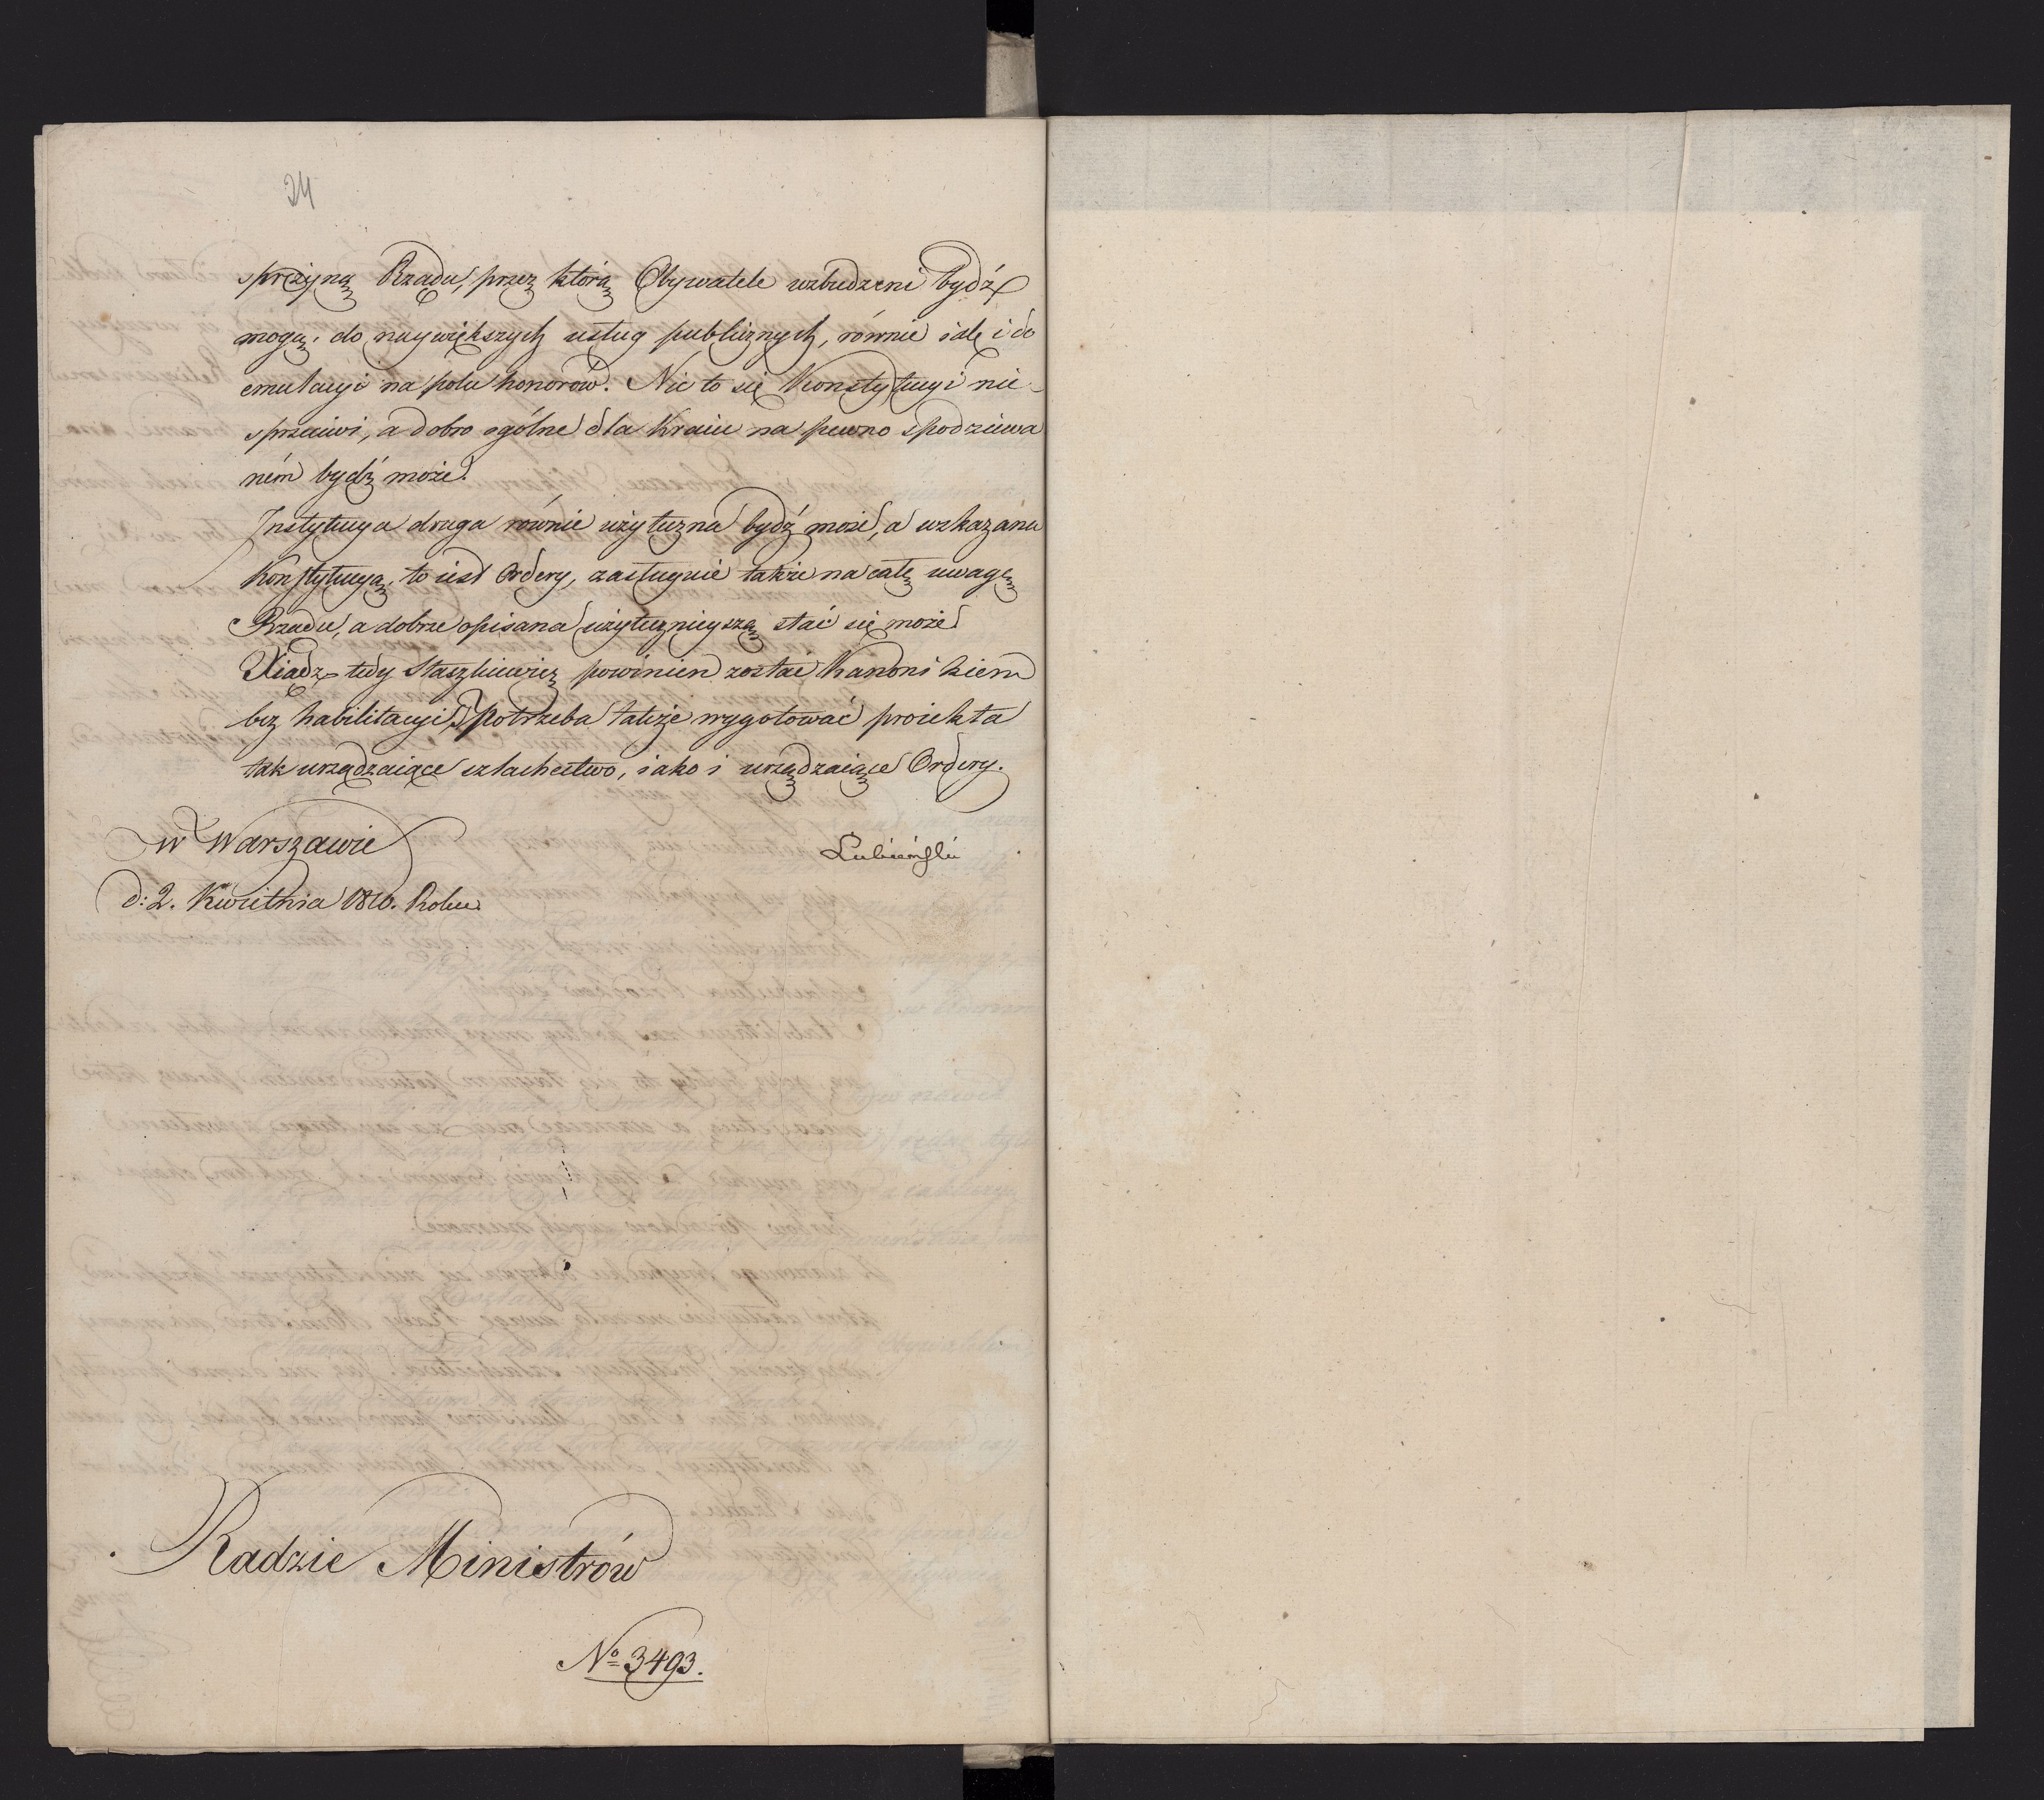 24
sprężyną Rządu, przez którą Obywatele wzbudzeni bydź
mogą, do naywiększych usług publicznych, równie iak i do
emulacyi na polu honorów. Nic to się Konstytucyi nie
sprzeciwi, a dobro ogólne dla Kraiu na pewno spodziewa
ném bydź może.
Instytucya druga równie użyteczna bydź może, a wskazana
Konstytucyą, to iest Ordery, zasługuie także na całą uwagę
Rządu, a dobrze opisana użytecznieyszą stać się może.
Xiądz tedy Staszkiewicz powinien zostać Kanonikiem
bez habilitacyi, Potrzeba także wygotować proiekta
tak urządzaiące szlachectwo, iako i urządzaiące Ordery.
w Warszawie
Łubieński
d: 2. Kwietnia 1810. Roku.
Radzie Ministrów
No 3493.